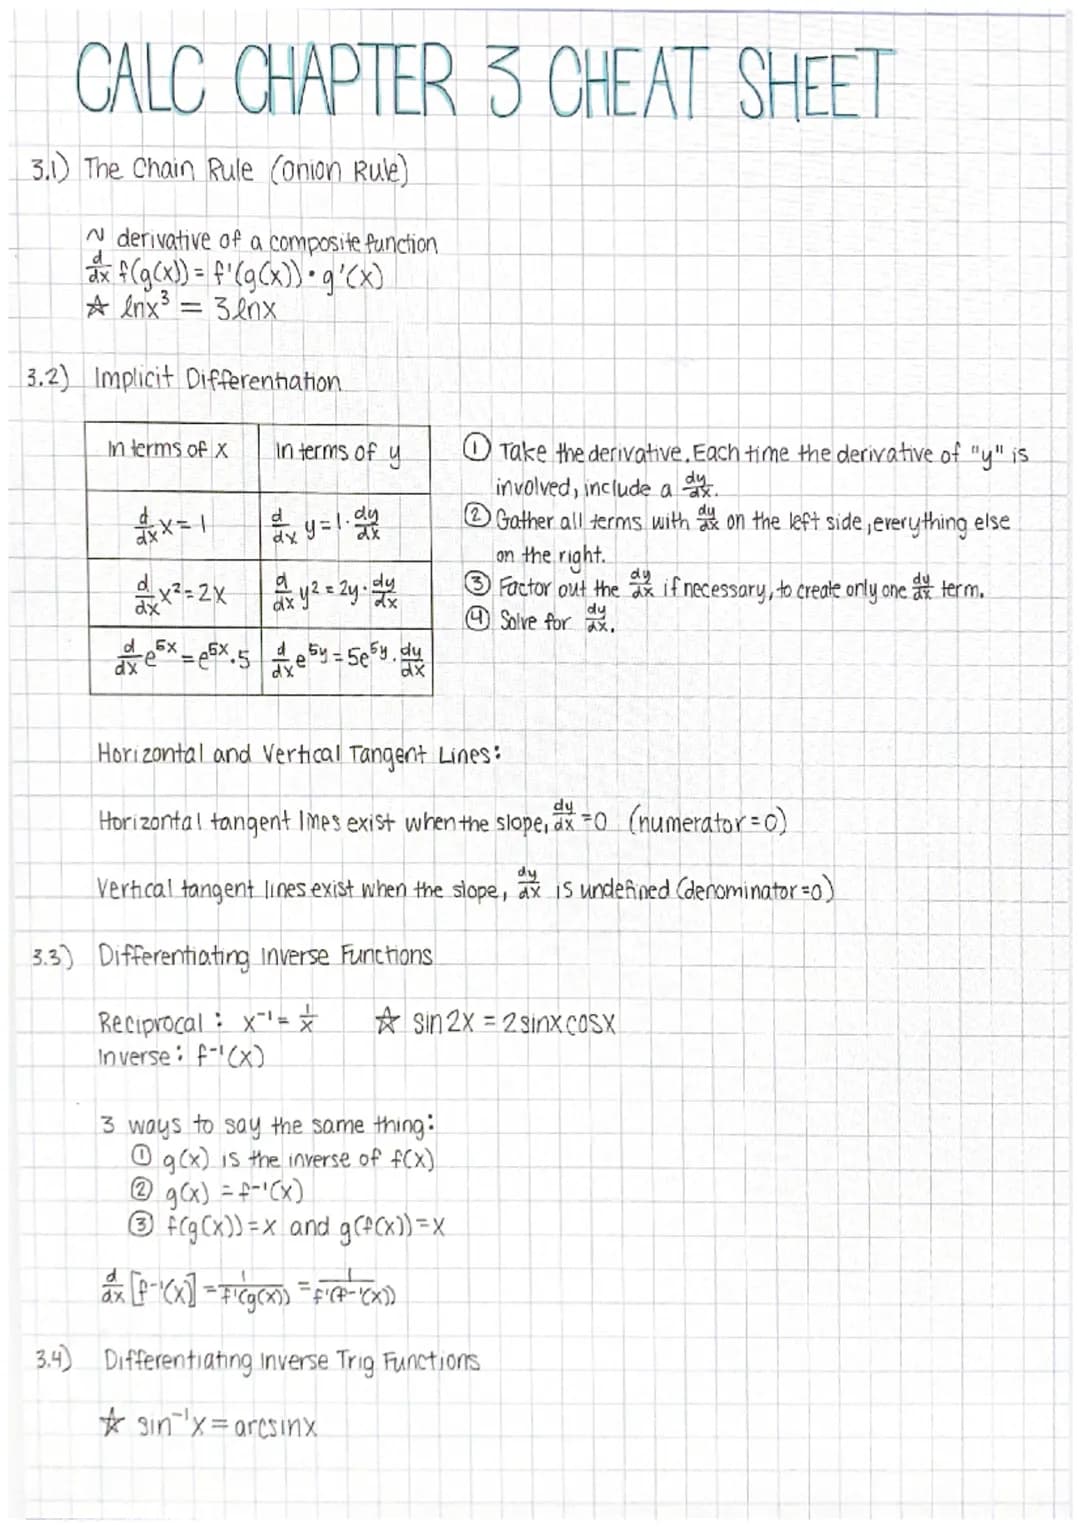 CALC CHAPTER 3 CHEAT SHEET
3.1) The Chain Rule (onion Rule)
~ derivative of a composite function
d/dx f(g(x)) = f'(g(x)) • g'(x)
☆ lnx³ = 3lnx
3.2) Implicit Differentiation
In terms of x | In terms of y
d/dx x = 1 | d/dx y = 1 · dy/dx
d/dx x² = 2x | d/dx y² = 2y · dy/dx
d/dx e⁵ˣ = e⁵ˣ · 5 | d/dx e⁵ʸ = 5e⁵ʸ · dy/dx
① Take the derivative. Each time the derivative of "y" is
involved, include a dy/dx.
② Gather all terms with dy/dx on the left side, everything else
on the right.
③ Factor out the dy/dx if necessary, to create only one dy/dx term.
④ Solve for dy/dx.
Horizontal and Vertical Tangent Lines:
Horizontal tangent lines exist when the slope, dy/dx = 0 (numerator = 0)
Vertical tangent lines exist when the slope, dy/dx is undefined (denominator = 0)
3.3) Differentiating Inverse Functions
Reciprocal : x⁻¹ = 1/x ☆ sin2x = 2sinxcosx
Inverse : f⁻¹(x)
3 ways to say the same thing:
① g(x) is the inverse of f(x)
② g(x) = f⁻¹(x)
③ f(g(x)) = x and g(f(x)) = x
d/dx [f⁻¹(x)] = 1/f'(g(x)) = 1/f'(f⁻¹(x))
3.4) Differentiating Inverse Trig Functions
☆ sin⁻¹x = arcsinx